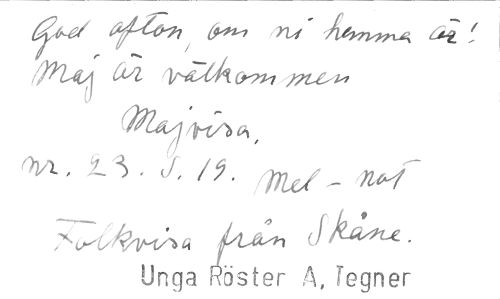 God afton, om ni hemma är!
Maj är välkommen
Majvisa.
nr. 23. S. 19. Mel - not
Folkvisa från Skåne.
Unga Röster A. Tegner